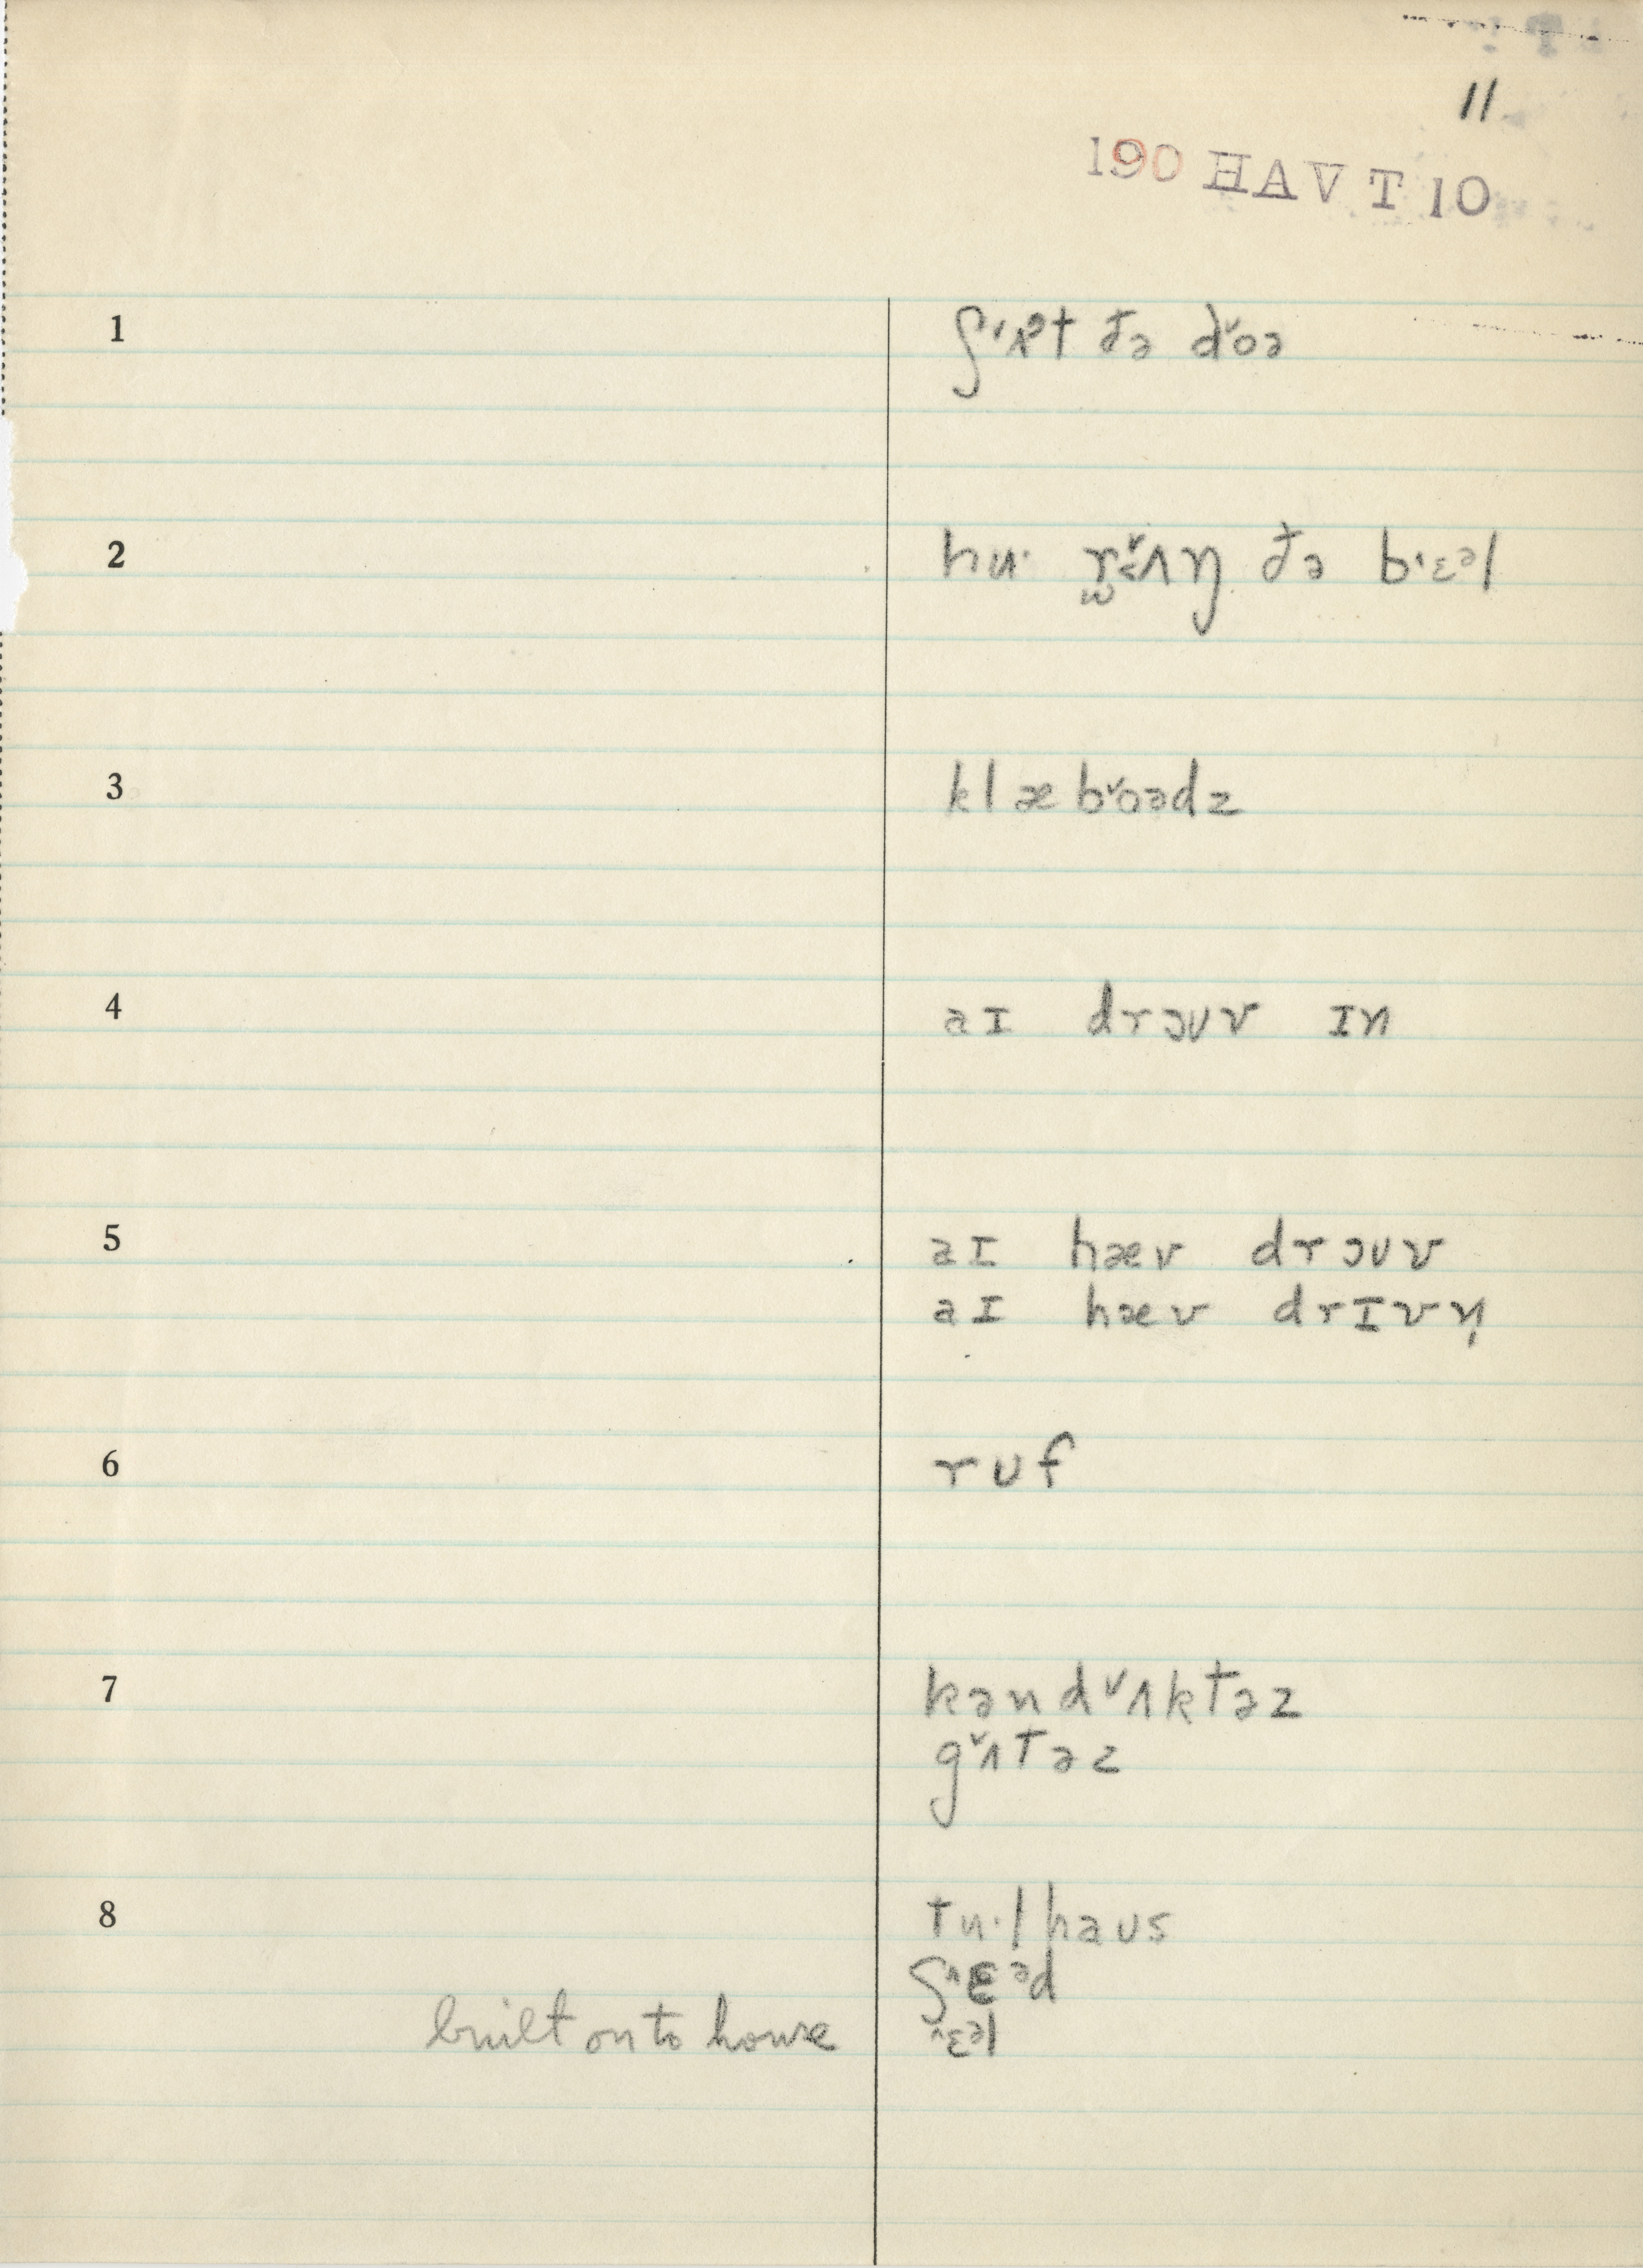 11
190 HAVT 10
1 ʃ˓ʌᵊt ðə d˅oə
2 hu· r̫˅ʌŋ ðə b˓ɛᵊl
3 klæb˅oədz
4 aɪ drɔʊv ɪn
5 aɪ hæv drɔʊv
aɪ hæv drɪvn̩
6 rʊf
7 kənd˅ʌktəz
g˅ʌtəz
8 tu·lhaʊs
ʃ˄ɛᵊd
built on to house ˄ɛᵊl